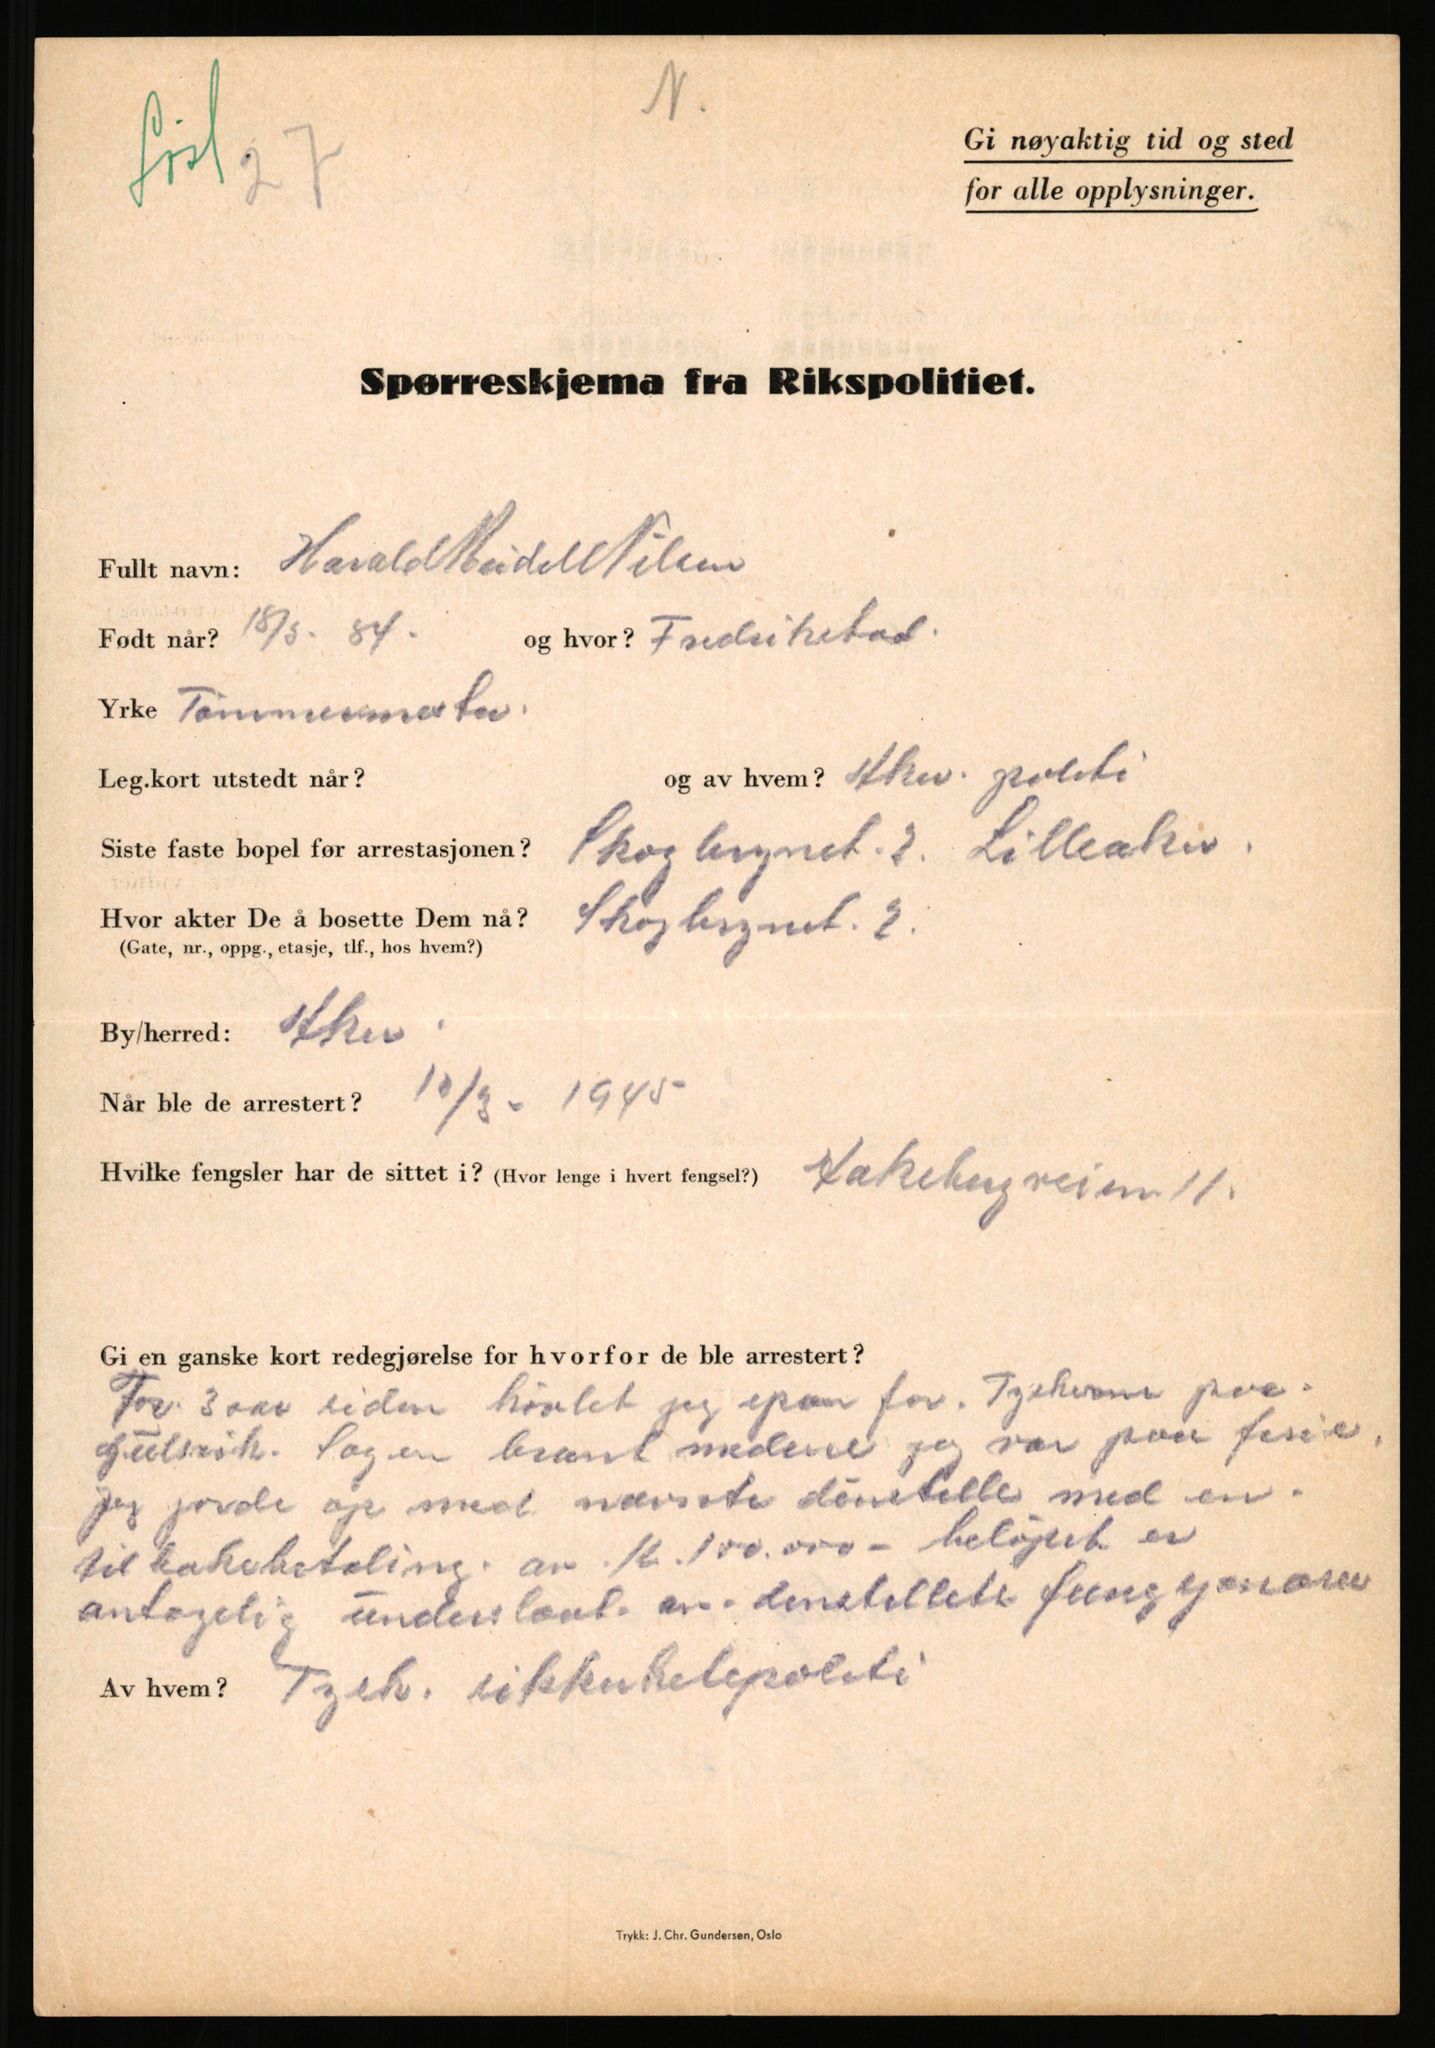 N.
Løsl 27
Gi nøyaktig tid og sted
for alle opplysninger.
Spørreskjema fra Rikspolitiet.
Fullt navn: Harald Meidell Nilsen
Født når? 18/5. 84. og hvor? Fredrikstad.
Yrke Tømmermester.
Leg.kort utstedt når? og av hvem? Aker. politi
Siste faste bopel før arrestasjonen? Skogbrynet. 2. Lilleaker.
Hvor akter De å bosette Dem nå? Skogbrynet. 2.
(Gate, nr., oppg., etasje, tlf., hos hvem?)
By/herred: Aker.
Når ble de arrestert? 10/3 - 1945
Hvilke fengsler har de sittet i? (Hvor lenge i hvert fengsel?) Kakebergveien 11.
Gi en ganske kort redegjørelse for hvorfor de ble arrestert?
For 3 aar siden høvlet jeg span for. Tyskerne paa.
Gulskok. Sagen brant medens jeg var paa ferie.
jeg jorde op med nævnte dinstelle med en.
tilbakebetaling. av. K. 100.000 - beløpet er
antagelig underslaat. av. dinstellets
Av hvem? Tysk. sikkerhetspoliti
Trykk: J. Chr. Gundersen, Oslo